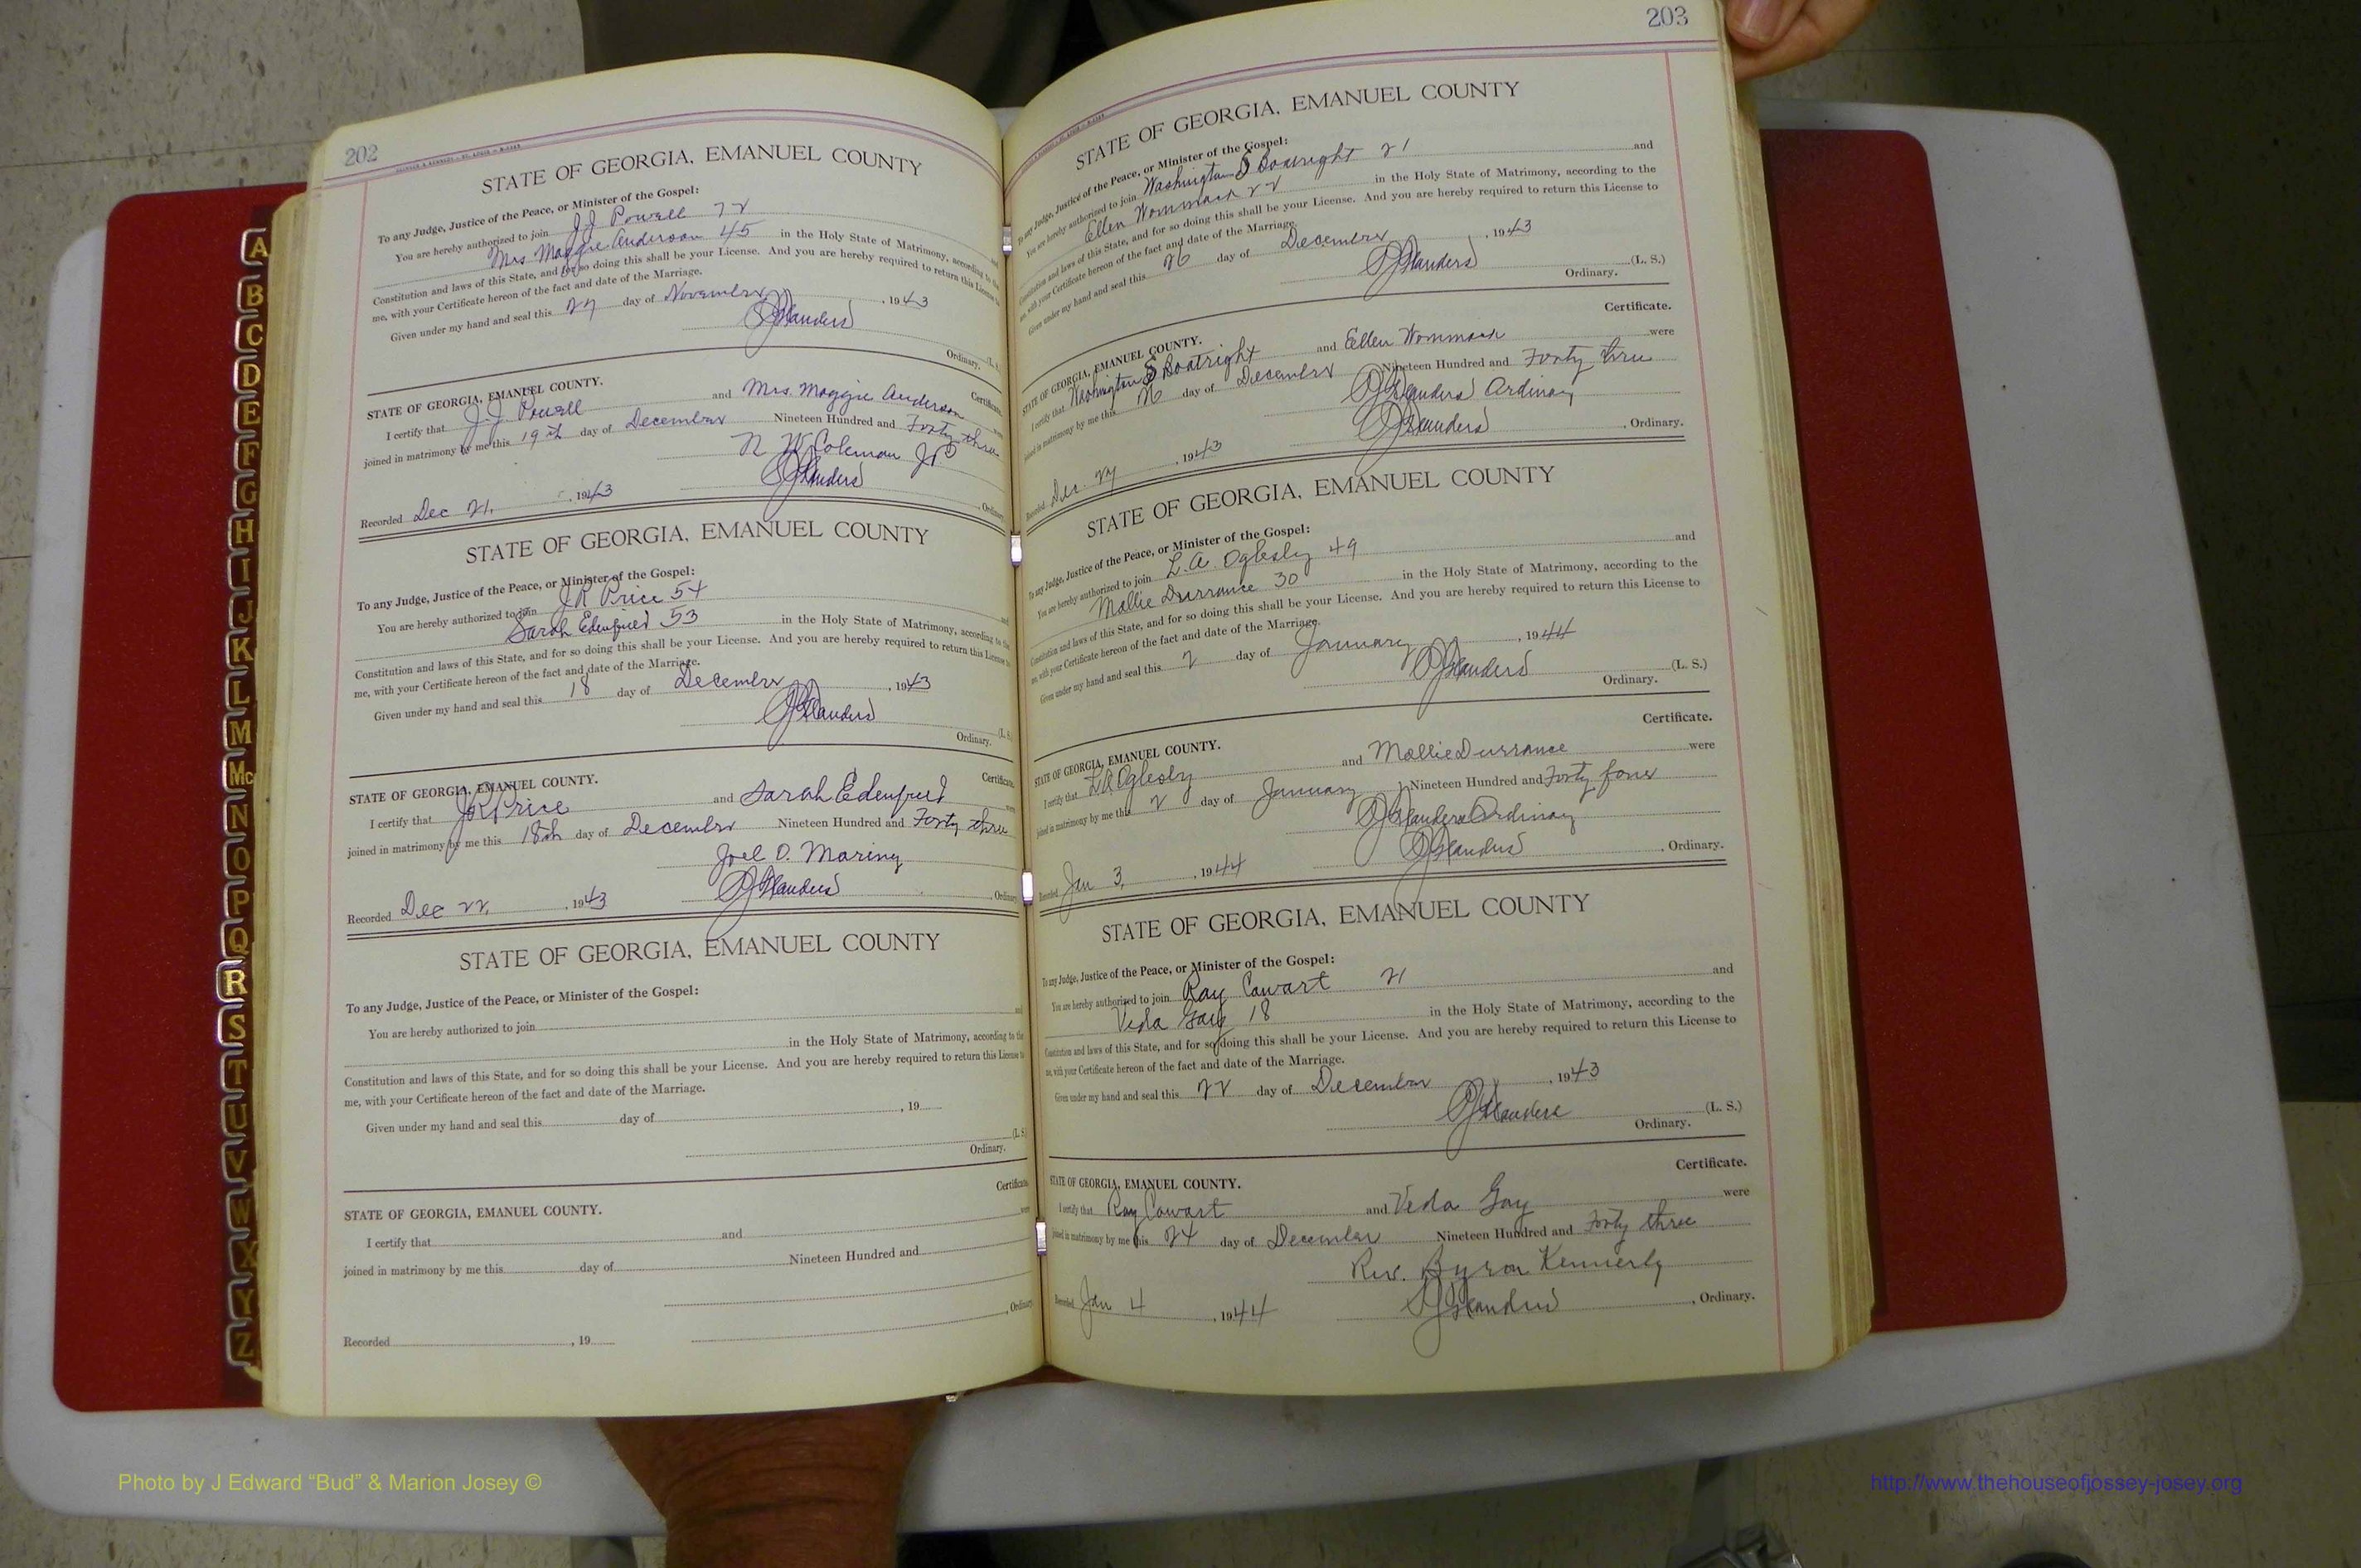 202
STATE OF GEORGIA, EMANUEL COUNTY
To any Judge, Justice of the Peace, or Minister of the Gospel:
You are hereby authorized to join J.J. Powell 72
Mrs Maggie Anderson 45 in the Holy State of Matrimony, according to the
Constitution and laws of this State, and for so doing this shall be your License. And you are hereby required to return this License to
me, with your Certificate hereon of the fact and date of the Marriage.
Given under my hand and seal this 27 day of November, 1943
(L. S.)
Ordinary.
Certificate.
STATE OF GEORGIA, EMANUEL COUNTY.
I certify that J.J. Powell and Mrs. Maggie Anderson were
joined in matrimony by me this 19th day of December Nineteen Hundred and Forty three
N W Coleman J P
Recorded Dec 21, 1943 Ordinary
STATE OF GEORGIA, EMANUEL COUNTY
To any Judge, Justice of the Peace, or Minister of the Gospel:
You are hereby authorized to join J R Price 54 and
Sarah Edenfield 53 in the Holy State of Matrimony, according to the
Constitution and laws of this State, and for so doing this shall be your License. And you are hereby required to return this License to
me, with your Certificate hereon of the fact and date of the Marriage.
Given under my hand and seal this 18 day of December, 1943
(L. S.)
Ordinary.
Certificate.
STATE OF GEORGIA, EMANUEL COUNTY.
I certify that J R Price and Sarah Edenfield were
joined in matrimony by me this 18th day of December Nineteen Hundred and Forty three
Joel O.
Recorded Dec 22, 1943 Ordinary
STATE OF GEORGIA, EMANUEL COUNTY
To any Judge, Justice of the Peace, or Minister of the Gospel:
You are hereby authorized to join and
in the Holy State of Matrimony, according to the
Constitution and laws of this State, and for so doing this shall be your License. And you are hereby required to return this License to
me, with your Certificate hereon of the fact and date of the Marriage.
Given under my hand and seal this day of , 19
(L. S.
Ordinary.
Certificate
STATE OF GEORGIA, EMANUEL COUNTY.
I certify that and were
joined in matrimony by me this day of Nineteen Hundred and
, Ordinary
Recorded , 19
203
STATE OF GEORGIA, EMANUEL COUNTY
To any Judge, Justice of the Peace, or Minister of the Gospel:
You are hereby authorized to join Washington S Boatright 21 and
Ellen Wommack 22 in the Holy State of Matrimony, according to the
Constitution and laws of this State, and for so doing this shall be your License. And you are hereby required to return this License to
me, with your Certificate hereon of the fact and date of the Marriage.
Given under my hand and seal this 26 day of December, 1943
(L. S.)
Ordinary.
Certificate.
STATE OF GEORGIA, EMANUEL COUNTY.
I certify that Washington S Boatright and Ellen Wommack were
joined in matrimony by me this 26 day of December Nineteen Hundred and Forty three
Flanders Ordinary
Recorded Dec. 27, 1943 Flanders, Ordinary.
STATE OF GEORGIA, EMANUEL COUNTY
To any Judge, Justice of the Peace, or Minister of the Gospel:
You are hereby authorized to join L.A. Oglesby 49 and
Mollie Durrance 30 in the Holy State of Matrimony, according to the
Constitution and laws of this State, and for so doing this shall be your License. And you are hereby required to return this License to
me, with your Certificate hereon of the fact and date of the Marriage.
Given under my hand and seal this 2 day of January, 1944
(L. S.)
Ordinary.
Certificate.
STATE OF GEORGIA, EMANUEL COUNTY.
I certify that L A Oglesby and Mollie Durrance were
joined in matrimony by me this 2 day of January Nineteen Hundred and Forty four
Flanders Ordinary
Recorded Jan 3, 1944 Flanders, Ordinary.
STATE OF GEORGIA, EMANUEL COUNTY
To any Judge, Justice of the Peace, or Minister of the Gospel:
You are hereby authorized to join Ray Cowart 21 and
Veda Gay 18 in the Holy State of Matrimony, according to the
Constitution and laws of this State, and for so doing this shall be your License. And you are hereby required to return this License to
me, with your Certificate hereon of the fact and date of the Marriage.
Given under my hand and seal this 22 day of December, 1943
(L. S.)
Ordinary.
Certificate.
STATE OF GEORGIA, EMANUEL COUNTY.
I certify that Ray Cowart and Veda Gay were
joined in matrimony by me this 24 day of December Nineteen Hundred and Forty three
Rev. Byron Kennerly
Recorded Jan 4, 1944 Flanders, Ordinary.
A
B
C
D
E
F
G
H
I
J
K
L
M
Mc
N
O
P
Q
R
S
T
U
V
W
X
Y
Z
Photo by J Edward “Bud” & Marion Josey ©
http://www.thehouseofjossey-josey.org